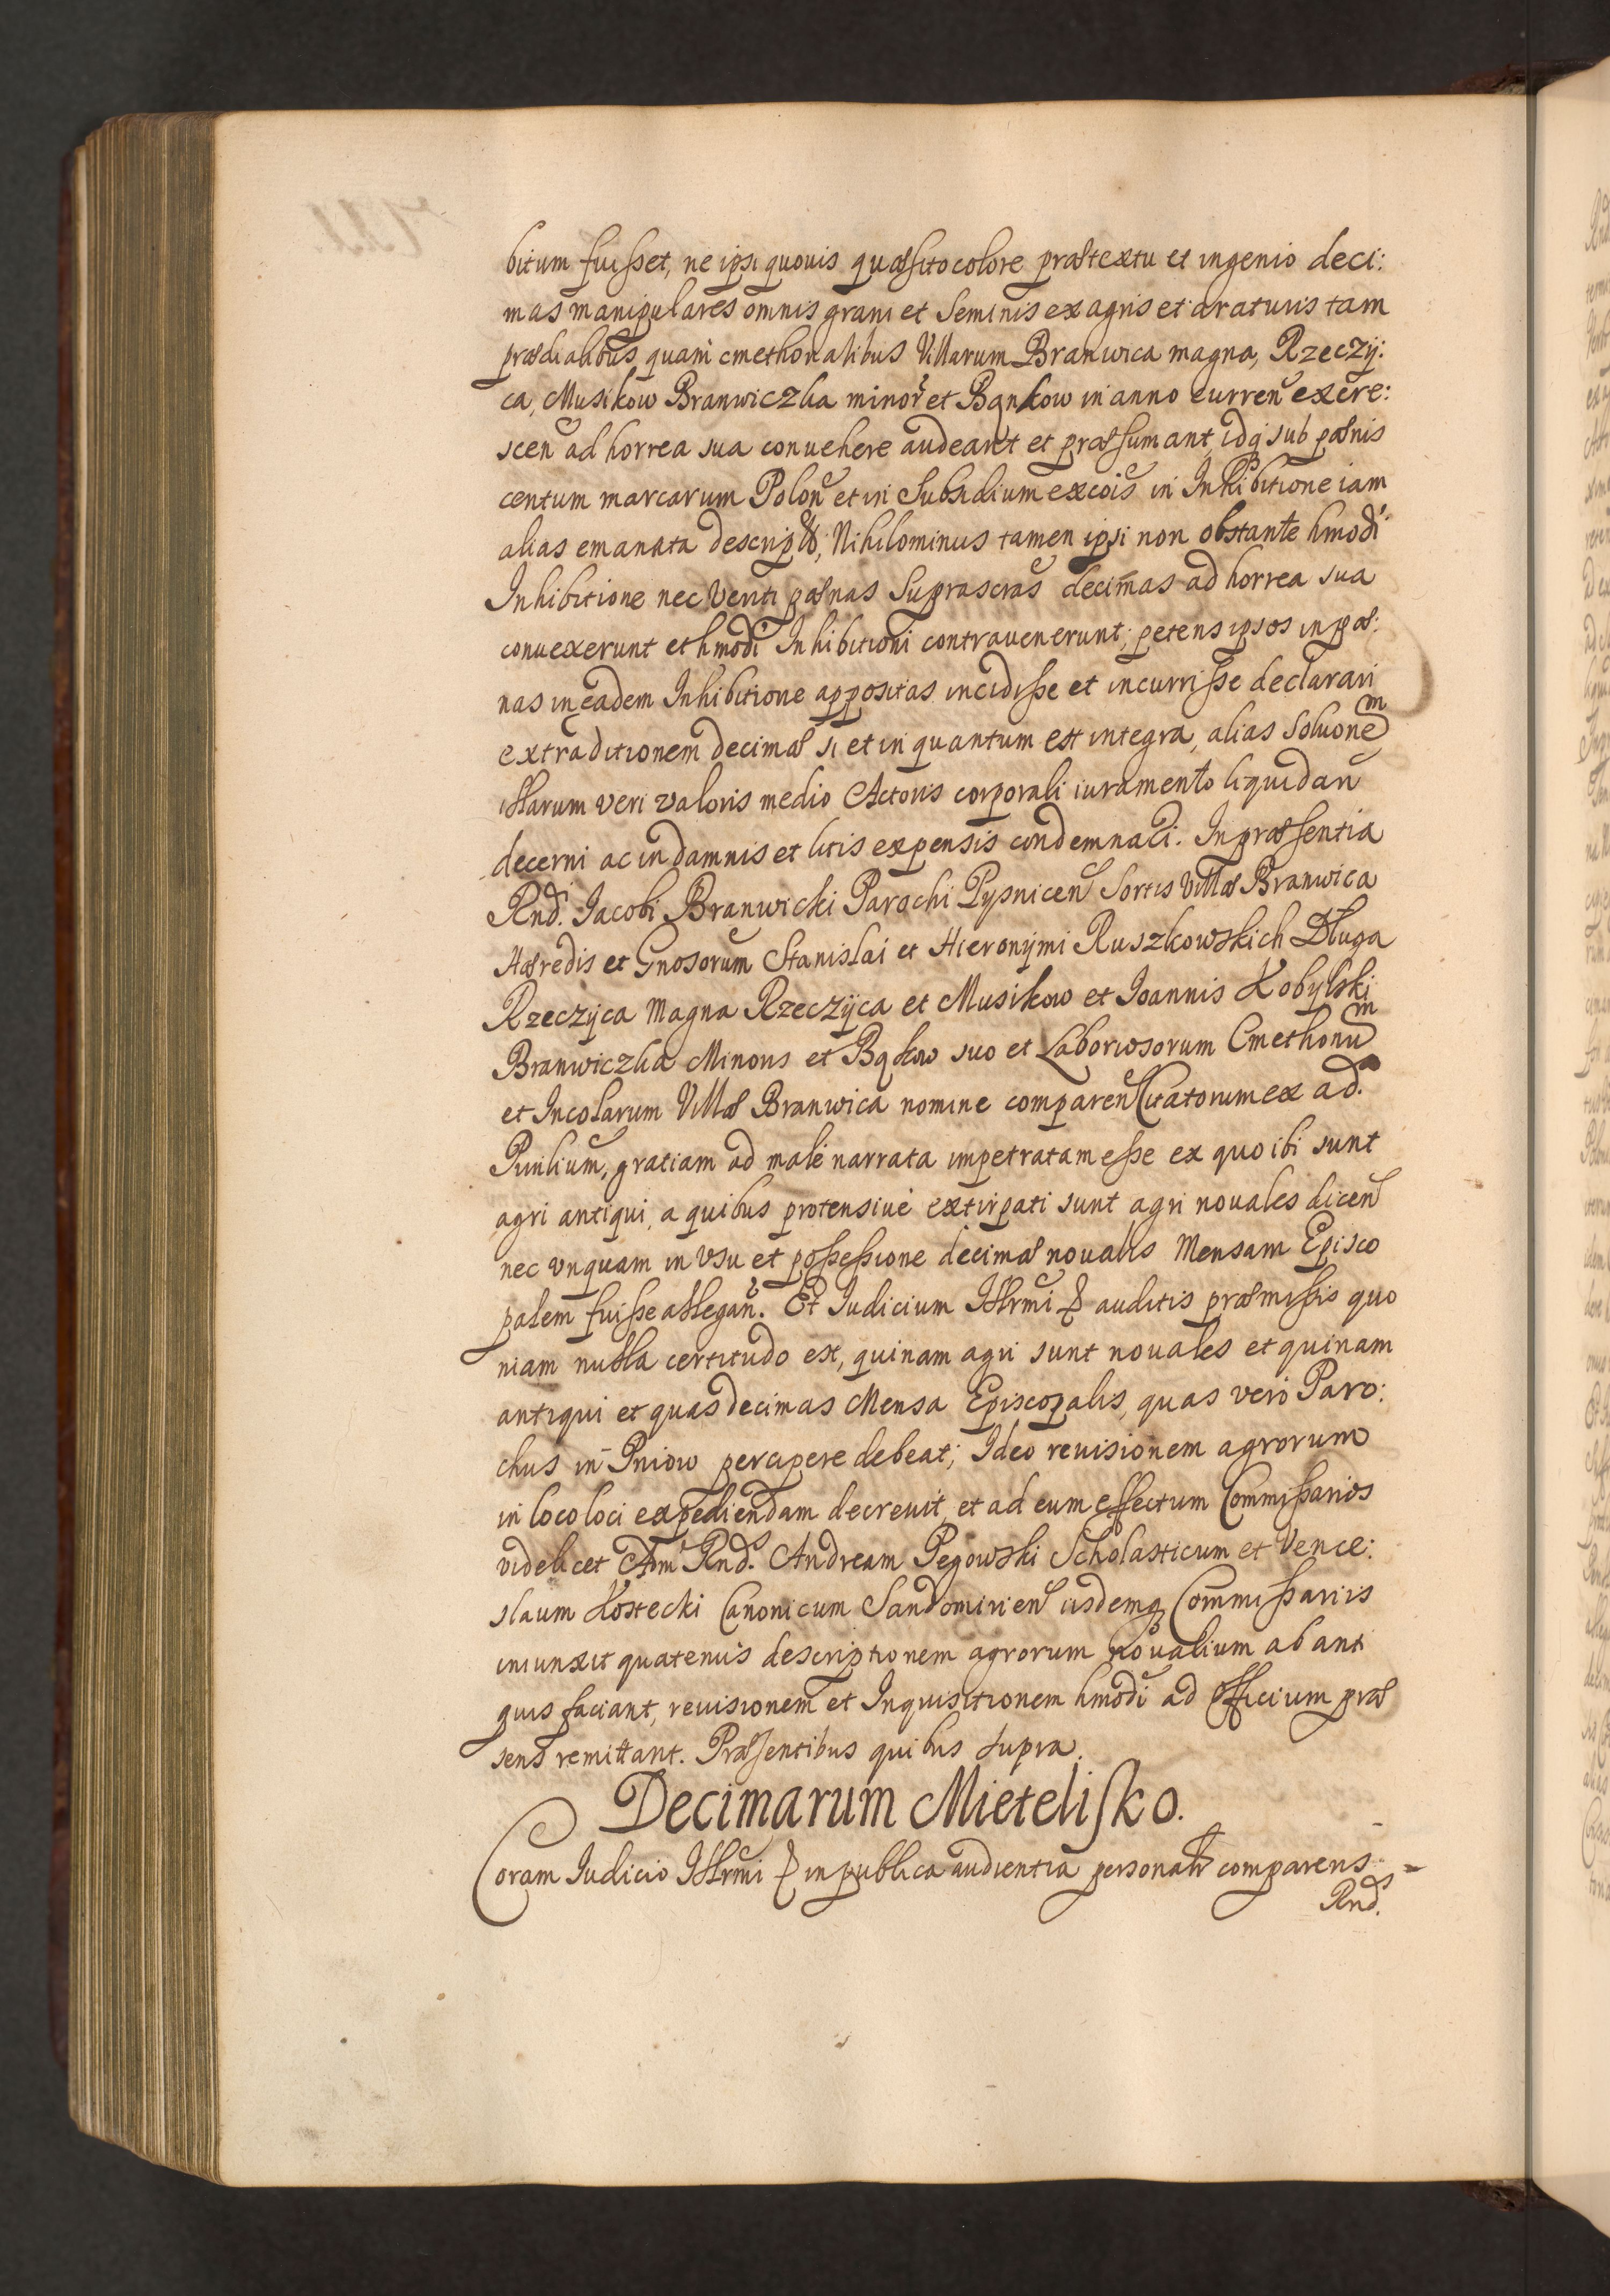 bitum fuisset, ne ipsi quouis quæsito colore prætextu et ingenio deci:
mas manipulares omnis grani et Seminis ex agris et araturis tam
prædialibus quam cmethonalibus Villarum Branwica magna, Rzeczy:
ca, Musikow Branwiczka minor et Bąnkow in anno curren excre:
scen ad horrea sua conuehere audeant et præsumant, idq sub pœnis
centum marcarum Polon et in Subsidium excois in Inhibitione iam
alias emanata descriptis, Nihilominus tamen ipsi non obstante hmodi
Inhibitione nec veriti pœnas Suprascras decimas ad horrea sua
conuexerunt et hmodi Inhibitioni contrauenerunt; petens ipsos in pœ:
nas in eadem Inhibitione appositas incidisse et incurrisse declarari
extraditionem decimæ si et in quantum est integra, alias Soluonem
illarum veri valoris medio Actoris corporali iuramento liquidan
decerni ac in damnis et litis expensis condemnari. In præsentia
Rnd. Iacobi Branwicki Parochi Pysnicen Sortis Villæ Branwica
Hæredis et Gnosorum Stanislai et Hieronymi Ruszkowskich Dluga
Rzeczyca Magna Rzeczyca et Musikow et Ioannis Kobylski
Branwiczka Minoris et Bąkow suo et Laboriosorum Cmethonum
et Incolarum Villæ Branwica nomine comparen Citatorum ex ad.
Purilium, gratiam ad male narrata impetratam esse ex quo ibi sunt
agri antiqui, a quibus protensiue extirpati sunt agri nouales dicen
nec vnquam in vsu et possessione decimæ noualis Mensam Episco
palem fuisse allegan. Et Iudicium Illrmi & auditis præmissis quo
niam nulla certitudo est, quinam agri sunt nouales et quinam
antiqui et quas decimas Mensa Episcopalis, quas vero Paro:
chus in Pniow percipere debeat; Ideo reuisionem agrorum
in loco loci expediendam decreuit, et ad eum effectum Commissarios
videlicet Adm Rnd. Andream Pegowski Scholasticum et Vence:
slaum Kostecki Canonicum Sandomirien iisdemq Commissariis
iniunxit quatenus descriptionem agrorum noualium ab anti
quis faciant, reuisionem et Inquisitionem hmodi ad Officium præ
sens remittant. Præsentibus quibus supra.
Decimarum Mietelisko.
Coram Iudicio Illrmi & in publica audientia personalr comparens
Rnd.